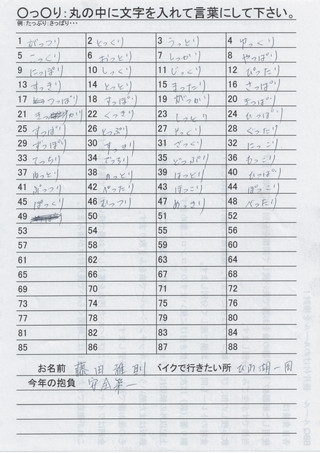 〇っ〇り:丸の中に文字を入れて言葉にして下さい。
例:たっぷり:さっぱり・・・
1 がっつり 2 とっくり 3 うっとり 4 ゆっくり
5 こっくり 6 おっとり 7 しっかり 8 やっぱり
9 にっぱり 10 しっくり 11 じっくり 12 ぴったり
13 すっきり 14 とっとり 15 まったり 16 さっぱり
17 つっぱり 18 すっぱり 19 がっかり 20 きっぱり
21 きっかり 22 くっきり 23 しっとり 24
25 ずっぽり 26 どっぷり 27 とっくり 28 ぐったり
29 ずっぽり 30 すっかり 31 さっくり 32 にっこり
33 でっちり 34 でっちり 35 どっぷり 36 もっこり
37 38 39 ほっとり 40
41 ぷっつり 42 べったり 43 ほっこり 44 ぼっこり
45 ぱっくり 46 むっつり 47 めっきり 48 べったり
49 50 51 52
53 54 55 56
57 58 59 60
61 62 63 64
65 66 67 68
69 70 71 72
73 74 75 76
77 78 79 80
81 82 83 84
85 86 87 88
お名前 藤田雅則 バイクで行きたい所 びわ湖一周
今年の抱負 安全第一